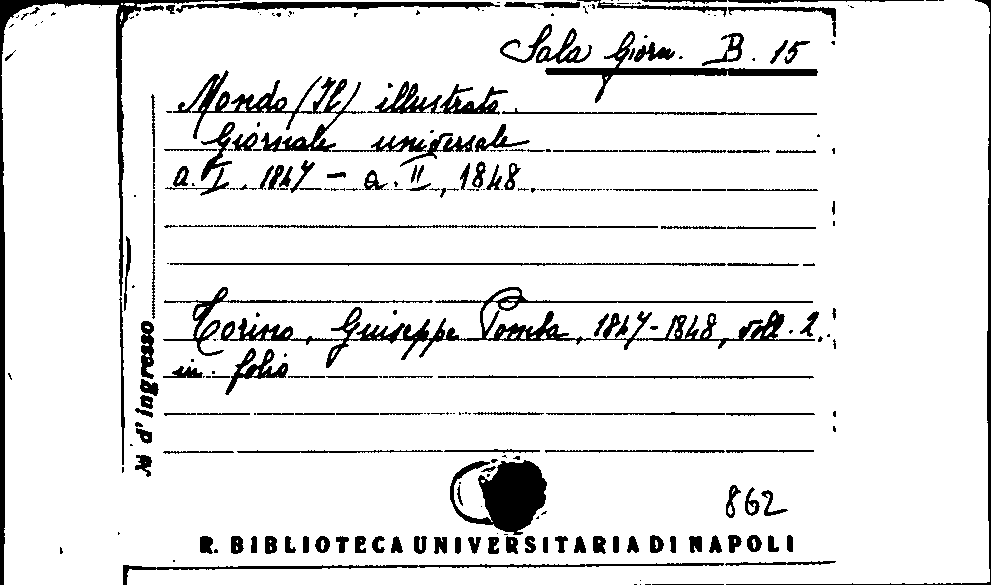 Sala Giorn. B. 15
Mondo (Il) illustrato.
Giornale universale
a. I, 1847 - a. II, 1848.
Torino, Giuseppe Pomba, 1847-1848, voll. 2.
in folio
№ d'ingresso
862
R. BIBLIOTECA UNIVERSITARIA DI NAPOLI